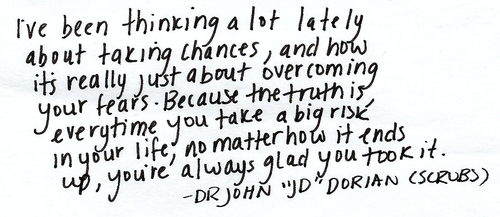 I've been thinking a lot lately
about taking chances, and how
it's really just about overcoming
your fears. Because the truth is,
everytime you take a big risk
in your life, no matter how it ends
up, you're always glad you took it.
-DR JOHN "JD" DORIAN (SCRUBS)